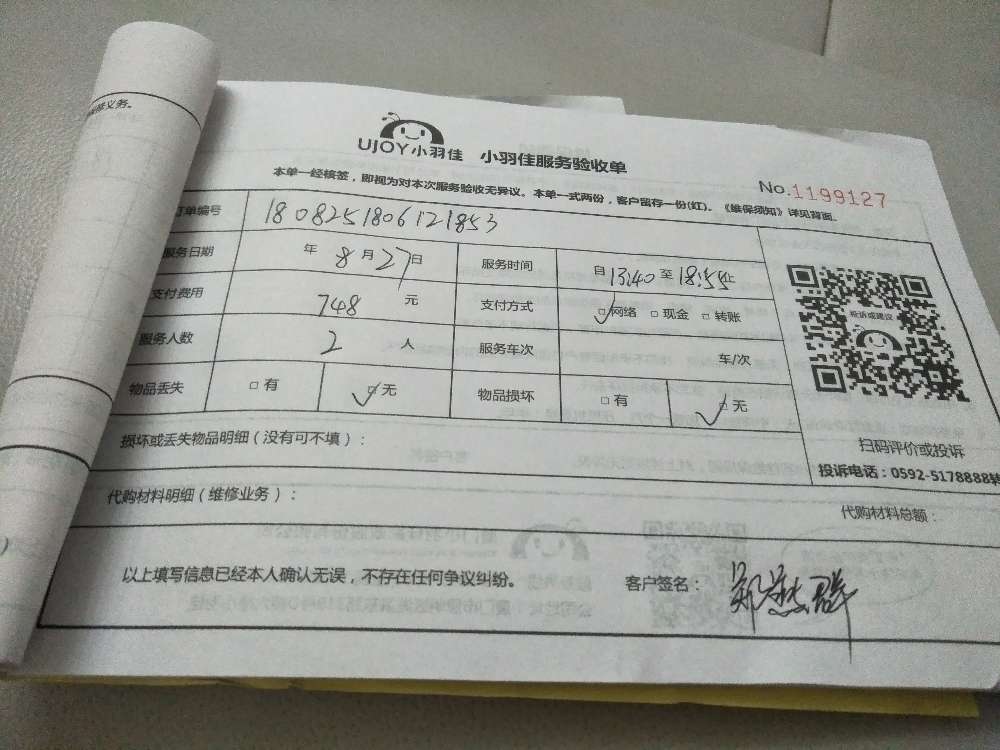 修义务。
UJOY小羽佳 小羽佳服务验收单
No.1199127
本单一经核签，即视为对本次服务验收无异议。本单一式两份，客户留存一份(红)。《维保须知》详见背面。
订单编号 1808251806121853
服务日期 年 8 月 27 日 服务时间 自 13:40 至 18:55 止
支付费用 748 元 支付方式 □网络 □现金 □转账
服务人数 2 人 服务车次 车/次
物品丢失 □有 □无 物品损坏 □有 □无
投诉或建议
扫码评价或投诉
投诉电话：0592-5178888转
损坏或丢失物品明细（没有可不填）：
代购材料明细（维修业务）： 代购材料总额：
以上填写信息已经本人确认无误，不存在任何争议纠纷。 客户签名：郑 群